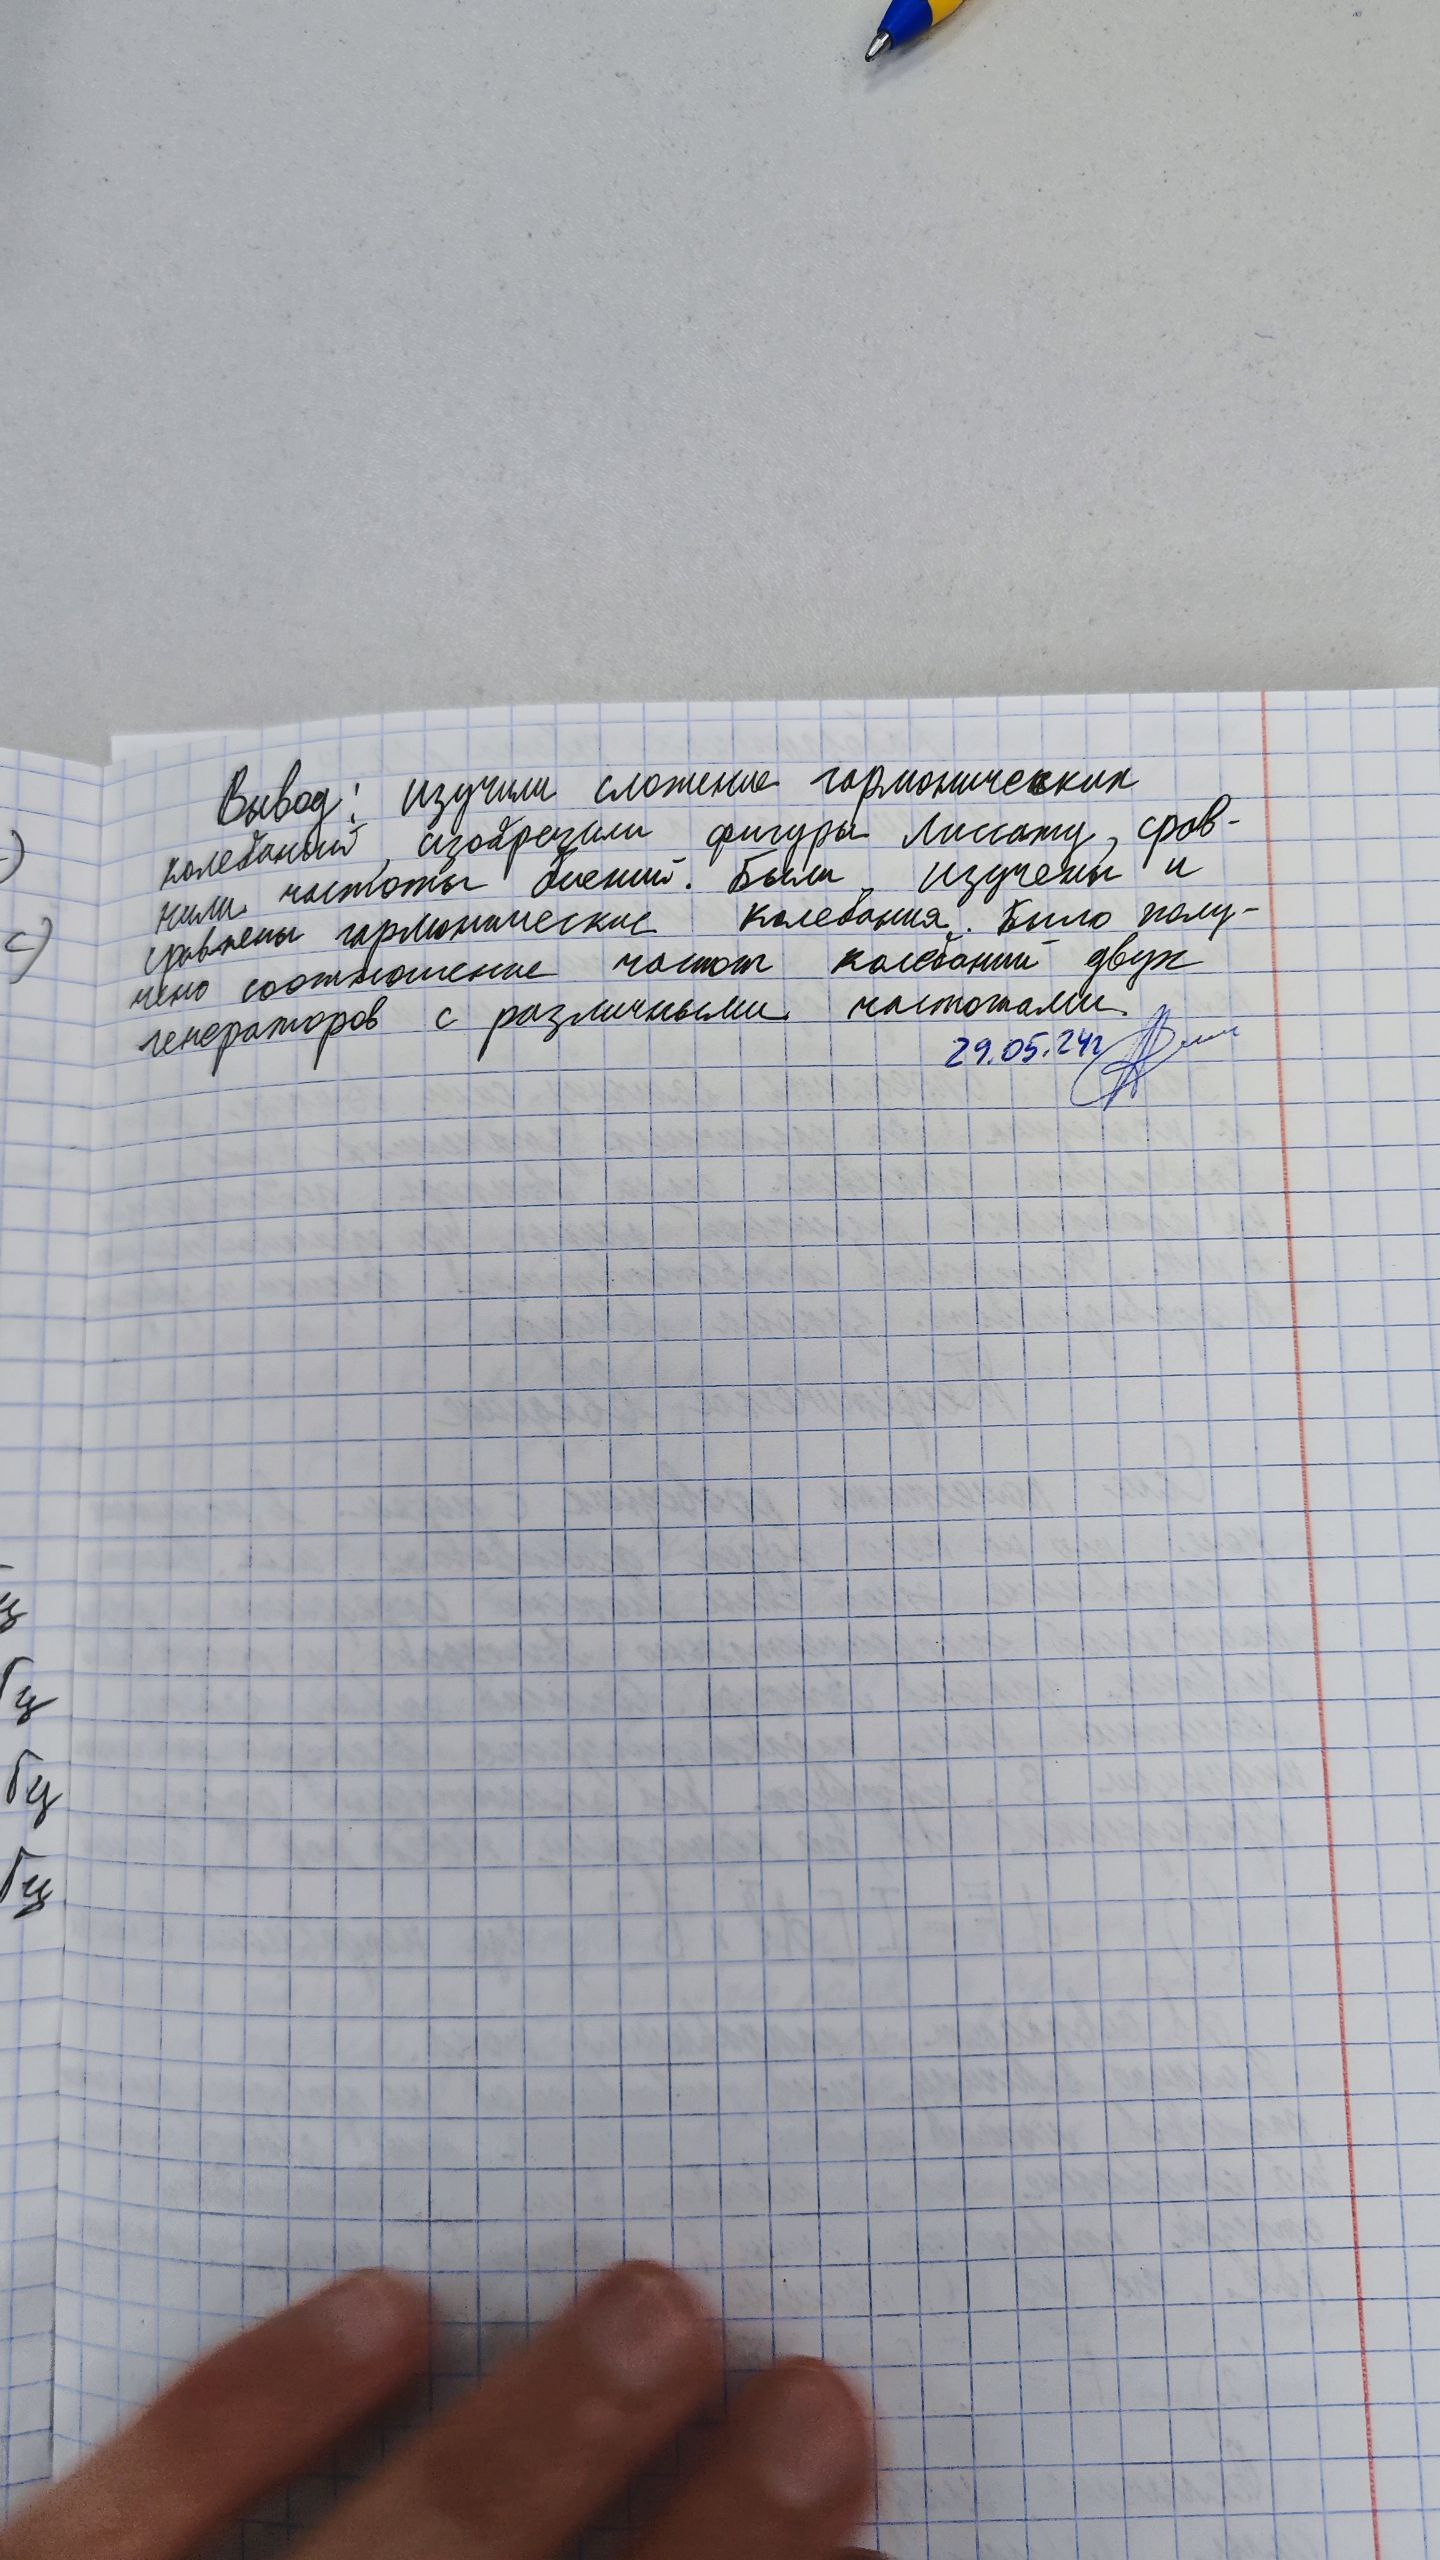 Вывод: изучили сложение гармонических
колебаний, изобразили фигуры Лиссажу, срав-
нили частоты биений. Были изучены и
сравнены гармонические колебания. Было полу-
чено соотношение частот колебаний двух
генераторов с различными частотами.
29.05.24г
Гц
Гц
Гц